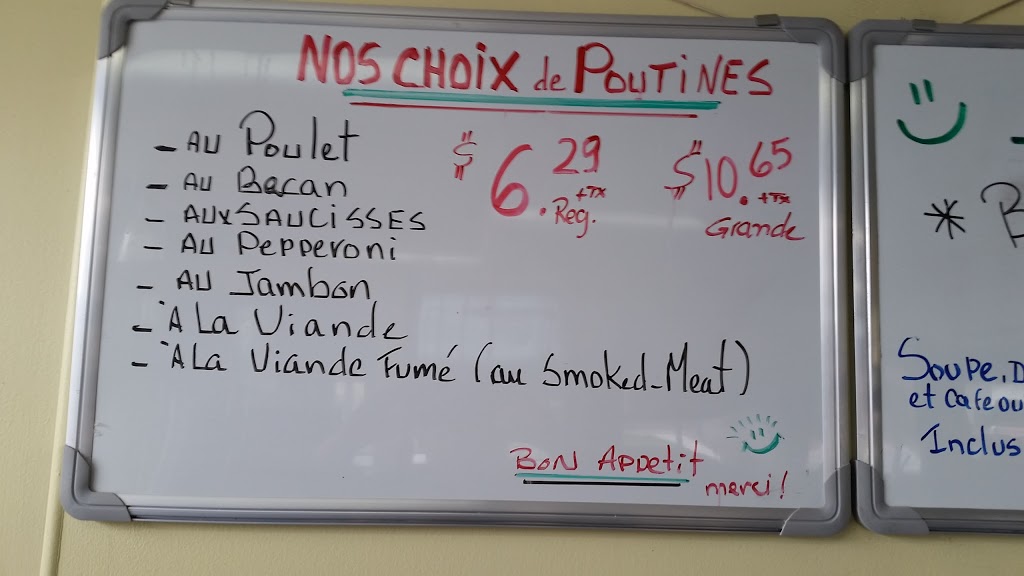 NOS CHOIX de POUTINES
- AU Poulet $6.29 +TX Reg. $10.65 +TX Grande
- AU Bacan
- AUX SAUCISSES
- AU Pepperoni
- AU Jambon
- À La Viande
- À La Viande Fumé (au Smoked-Meat)
BON APPetit
merci!
*
Soupe,
et Cafe ou
Inclus